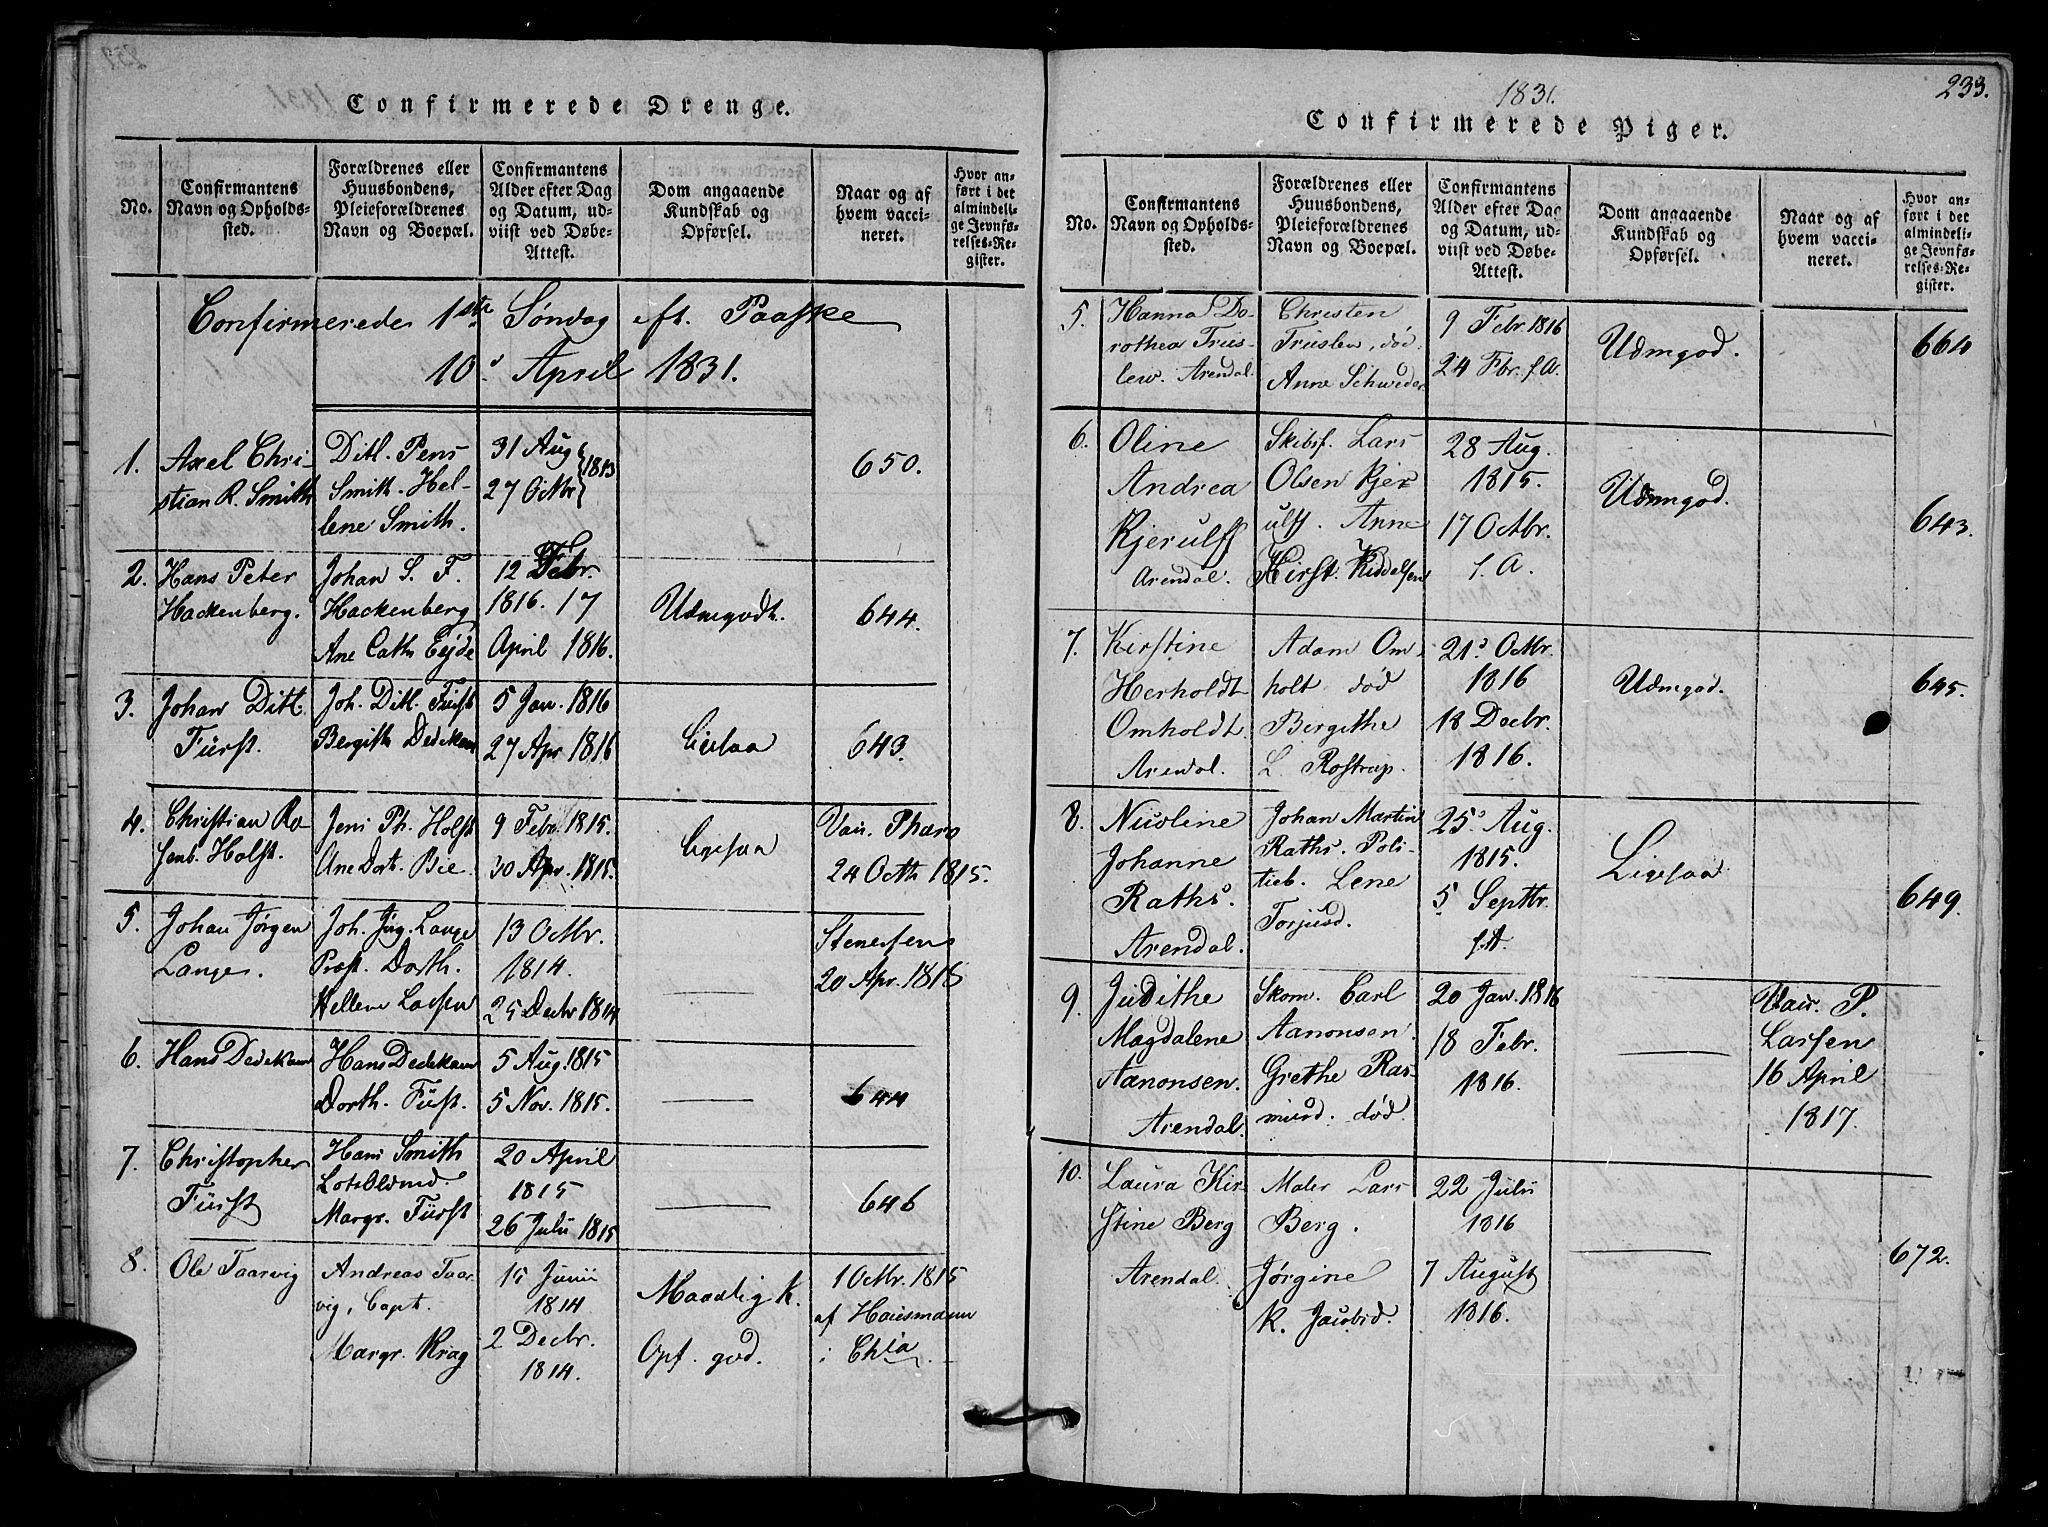 Confirmerede Drenge.
No.
Confirmantens
Navn og Opholds-
sted.
Forældrenes eller
Huusbondens,
Pleieforældrenes
Navn og Boepæl.
Confirmantens
Alder efter Dag
og Datum, ud-
viist ved Døbe-
Attest.
Dom angaaende
Kundskab og
Opførsel.
Naar og af
hvem vacci-
neret.
Hvor an-
ført i det
almindeli-
ge Jevnfø-
relses-Re-
gister.
Confirmerede 1ste Søndag eft. Paaske
10d April 1831.
1.
Axel Chri-
stian R. Smith
Ditl. Pens
Smith. Hel-
lene Smith.
31 Aug
27 Octbr
1813
650.
2.
Hans Peter
Hackenberg.
Johan S. F.
Hackenberg
Ane Cath Eyde
12 Febr.
1816. 17
April 1816.
Udmgodt.
644.
3.
Johan Ditl.
Fürst.
Joh. Ditl. Fürst
Bergith Dedekam
5 Jan. 1816
27 Apr 1816
Ligesaa
643.
4.
Christian Ro-
senb. Holst.
Jens Ph. Holst
Ane Dort. Bie.
9 Febr. 1815.
30 Apr. 1815.
Ligesaa
Vac. Pharo
24 Octb 1815.
5.
Johan Jørgen
Lange.
Joh. Jørg. Lange
Præst. Dorth.
Hellene Lassen
13 Octbr.
1814.
25 Decbr 1814
Stenersen
20 Apr. 1818
6.
Hans Dedekam
Hans Dedekam
Dorth. Fürst.
5 Aug. 1815
5 Nov. 1815.
644
7.
Christopher
Fürst
Hans Smith
Lotsoldmd.
Margr. Fürst
20 April
1815
26 Julii 1815
646
8.
Ole Taarvig
Andreas Taar-
vig, Capt.
Margr. Krag
15 Junii
1814
2 Decbr.
1814.
Maadlig K.
Opf. god.
1 Octbr. 1815
af Haismann
i Chia.
1831.
233.
Confirmerede Piger.
No.
Confirmantens
Navn og Opholds-
sted.
Forældrenes eller
Huusbondens,
Pleieforældrenes
Navn og Boepæl.
Confirmantens
Alder efter Dag
og Datum, ud-
viist ved Døbe-
Attest.
Dom angaaende
Kundskab og
Opførsel.
Naar og af
hvem vacci-
neret.
Hvor an-
ført i det
almindeli-
ge Jevnfø-
relses-Re-
gister.
5.
Hanna Do-
rothea Trus-
lew. Arendal.
Christen
Truslew, død.
Anne Schweder
9 Febr. 1816
24 Fbr. s.A.
Udmgod.
660
6.
Oline
Andrea
Kjerulff
Arendal.
Skibsf. Lars
Olsen Kjer-
ulff. Anne
Kirst. Kiddelsen
28 Aug.
1815.
17 Octbr.
s. A.
Udmgod.
643.
7.
Kirstine
Herholdt
Omholdt.
Arendal.
Adam Om-
holt død
Bergithe
L. Rostrup.
21d Octbr.
1816
18 Decbr.
1816.
Udmgod.
645.
8.
Nicoline
Johanne
Raths.
Arendal.
Johan Martin
Raths. Poli-
tieb. Lene
Torjusd.
25d Aug.
1815.
5 Septbr.
s.A
Ligesaa
649.
9.
Judithe
Magdalene
Aanonsen.
Arendal.
Skom. Carl
Aanonsen.
Grethe Ras-
musd. død.
20 Jan. 1816
18 Febr.
1816.
Vac. P.
Larsen
16 April
1817.
10.
Laura Kir-
stine Berg
Arendal.
Maler Lars
Berg.
Jørgine
K. Jacobsd.
22 Julii
1816
7 August
1816.
672.